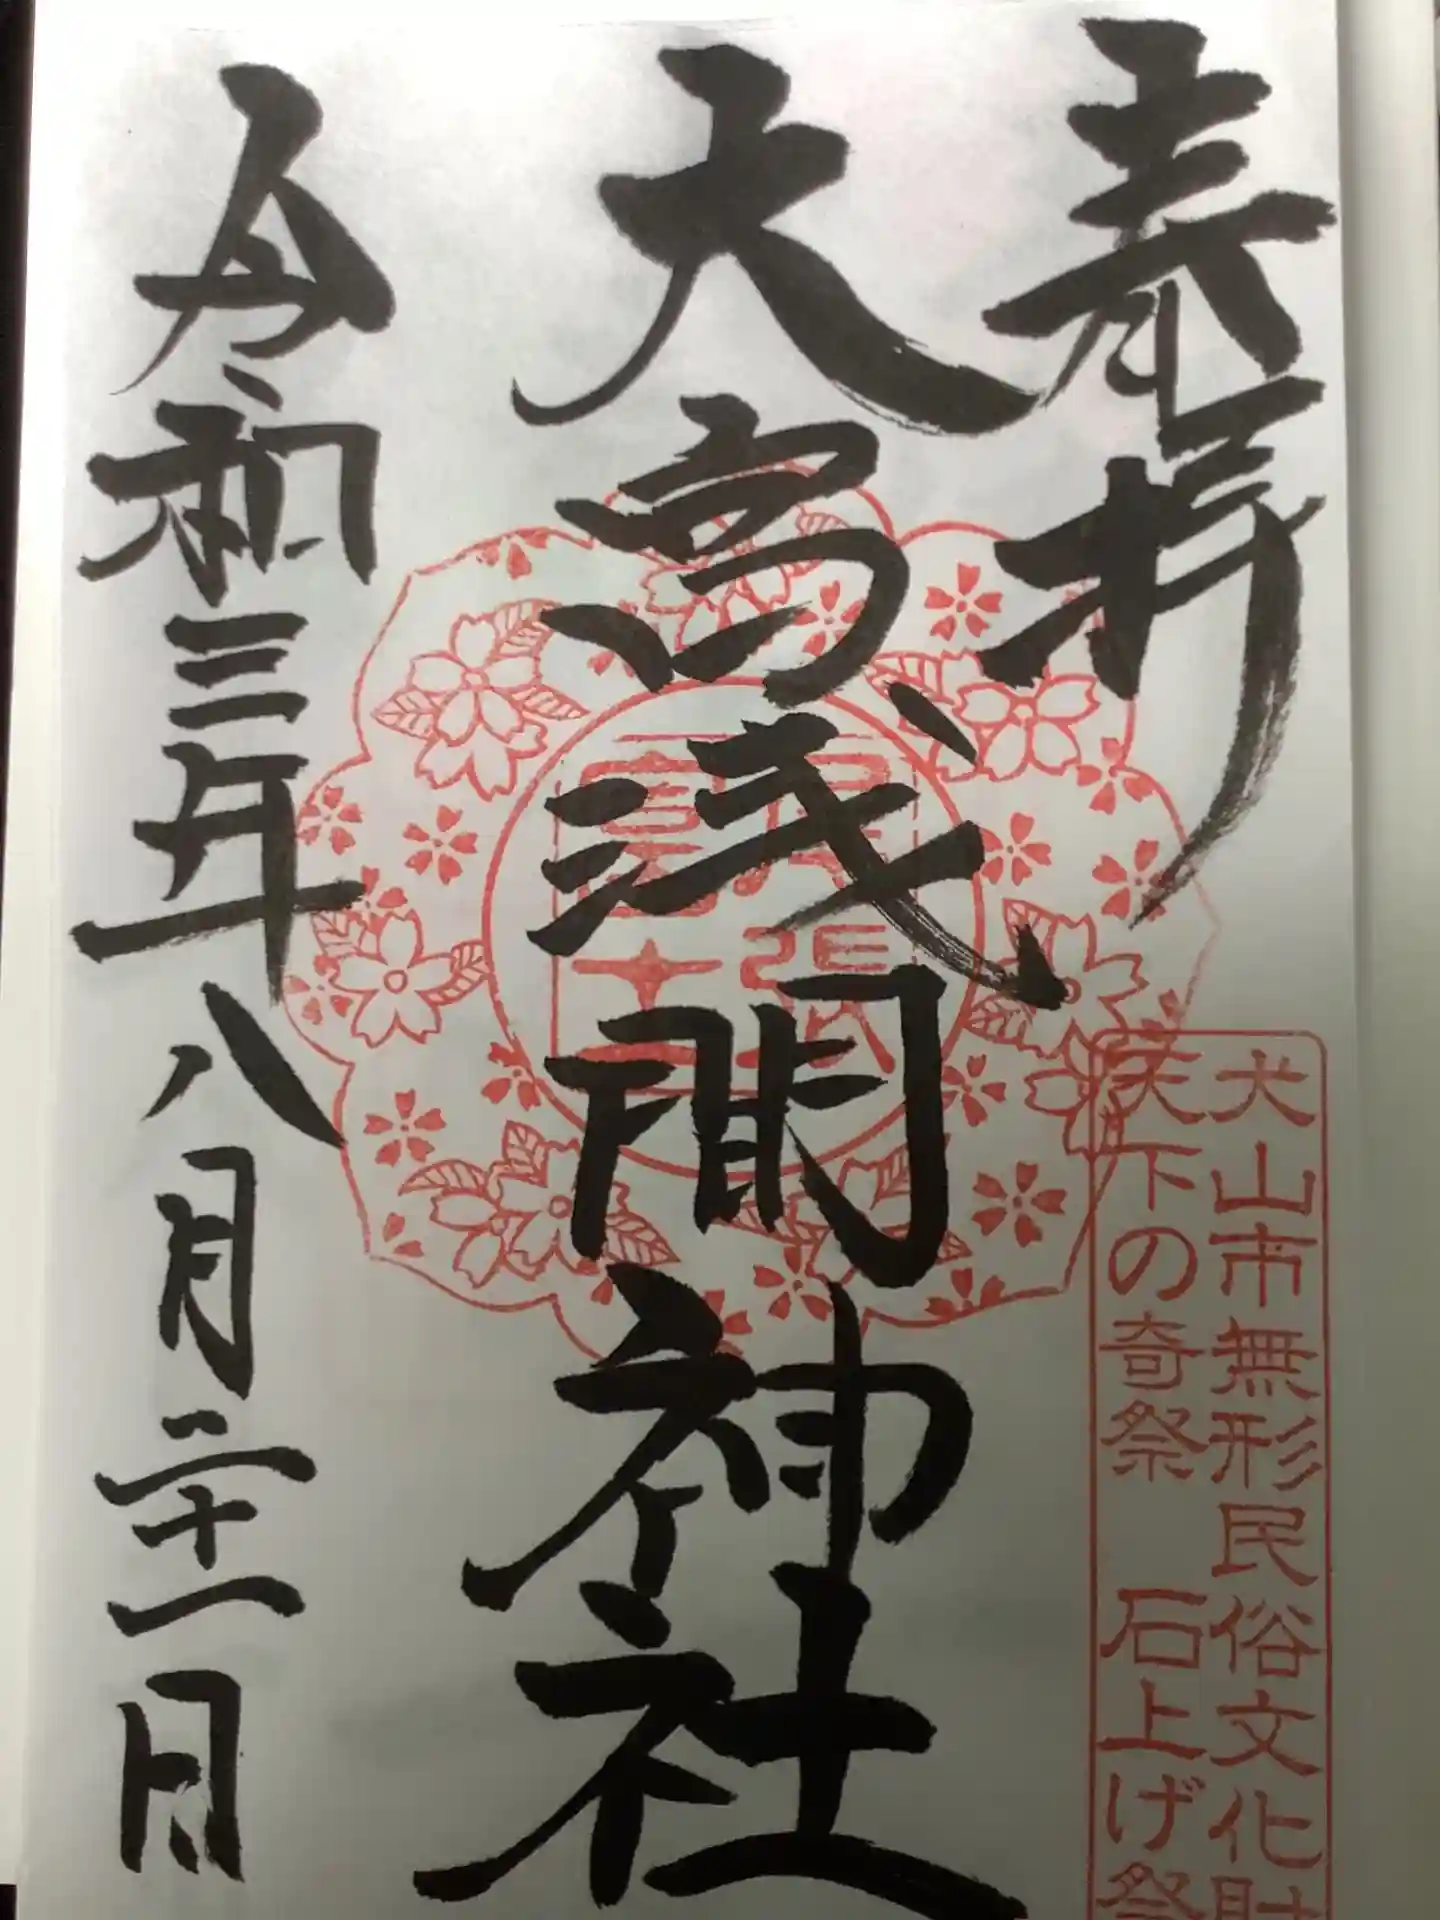 奉拝
犬山市無形民俗文化財
天下の奇祭 石上げ祭
大宮浅間神社
尾張
富士
令和三年八月二十一日